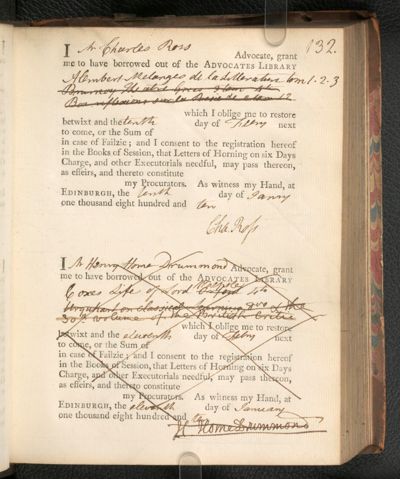 132.
I Mr Charles Ross Advocate, grant
me to have borrowed out of the ADVOCATES LIBRARY
Alembert Melanges de la Litterature tom 1. 2. 3
which I oblige me to restore
betwixt and the tenth day of Febry next
to come, or the Sum of
in case of Failzie; and I consent to the registration hereof
in the Books of Session, that Letters of Horning on six Days
Charge, and other Executorials needful, may pass thereon,
as effeirs, and thereto constitute
my Procurators. As witness my Hand, at
EDINBURGH, the tenth day of Janry
one thousand eight hundred and ten
Cha. Ross
I Mr Henry Home Drummond Advocate, grant
me to have borrowed out of the ADVOCATES LIBRARY
Coxes Life of Lord 4to
Urquhart on Classical Learning 8vo & the
30th volume of the British Critic
which I oblige me to restore
betwixt and the eleventh day of Febry next
to come, or the Sum of
in case of Failzie; and I consent to the registration hereof
in the Books of Session, that Letters of Horning on six Days
Charge, and other Executorials needful, may pass thereon,
as effeirs, and thereto constitute
my Procurators. As witness my Hand, at
EDINBURGH, the eleventh day of January
one thousand eight hundred and ten
H. Home Drummond